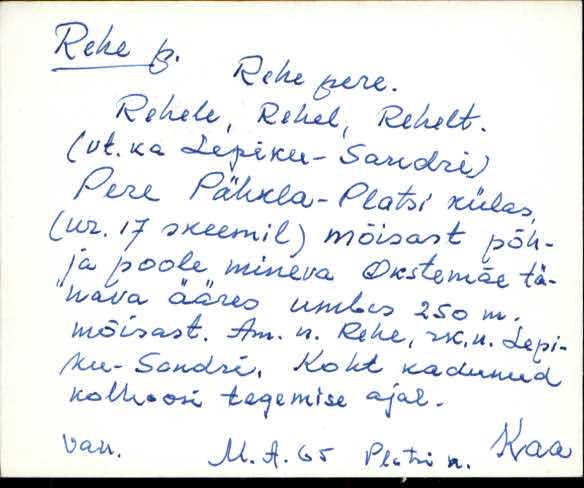 Rehe p.
Rehe pere.
Rehele, Rehel, Rehelt.
(vt. ka Lepiku-Sandri)
Pere Pähkla-Platsi külas,
(nr. 17 skeemil) mõisast põh-
ja poole mineva Okstemäe tä-
nava ääres umbes 250 m.
mõisast. Am. n. Rehe, rk. n. Lepi-
ku-Sandri. Koht kadunud
kolhoosi tegemise ajal.
van. M.A. 65 Platsi n. Kaa